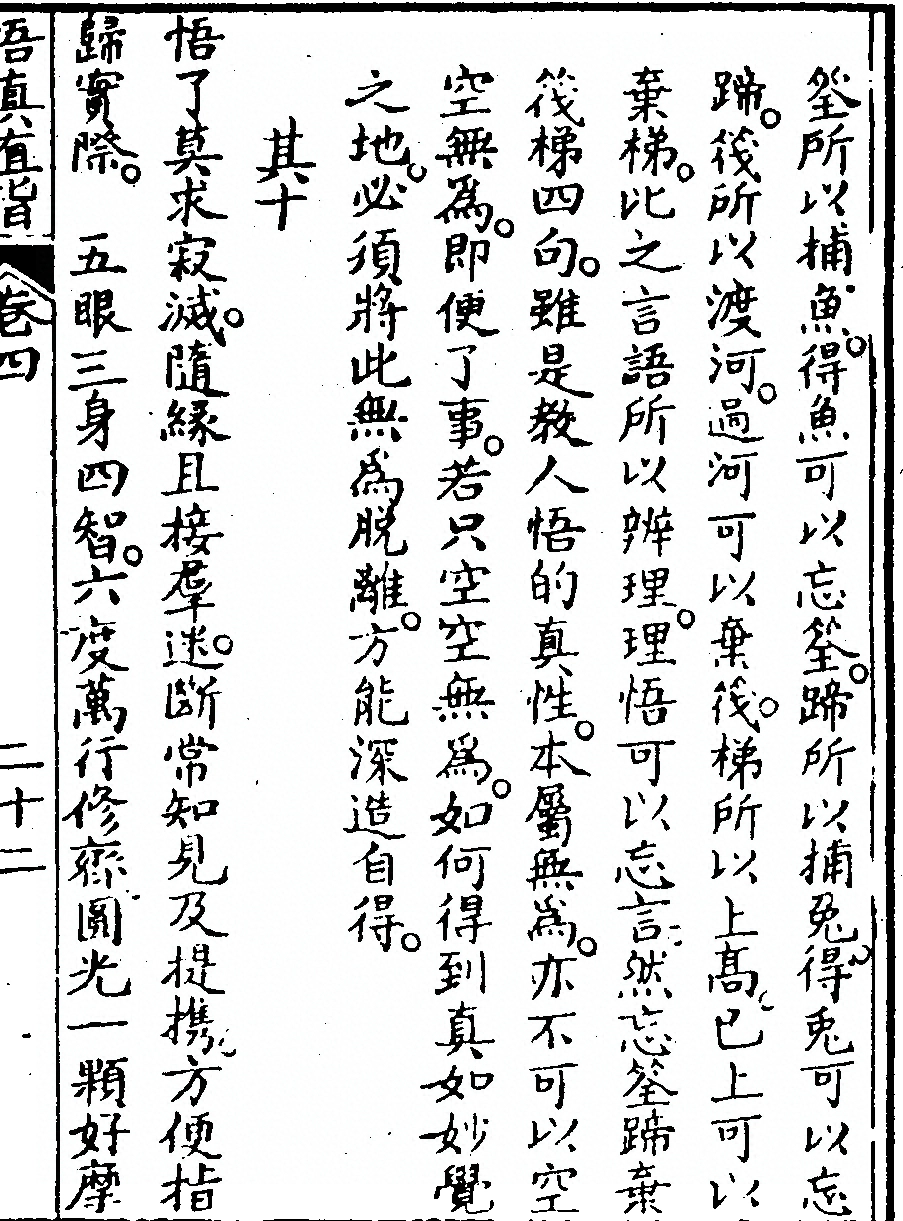 筌所以捕魚。得魚可以忘筌。蹄所以捕兔。得兎可以忘
蹄。筏所以渡河。過河可以棄筏。梯所以上高。已上可以
棄梯。比之言語所以辨理。理悟可以忘言。然忘筌蹄棄
筏梯四句。雖是教人悟的真性。本屬無為。亦不可以空
空無為。即便了事。若只空空無為。如何得到真如妙覺
之地。必須將此無為脫離。方能深造自得。
其十
悟了莫求寂滅。隨緣且接羣迷。斷常知見及提携。方便指
歸實際。 五眼三身四智。六度萬行修齋。圓光一顆好摩
悟真直指 卷四 二十二